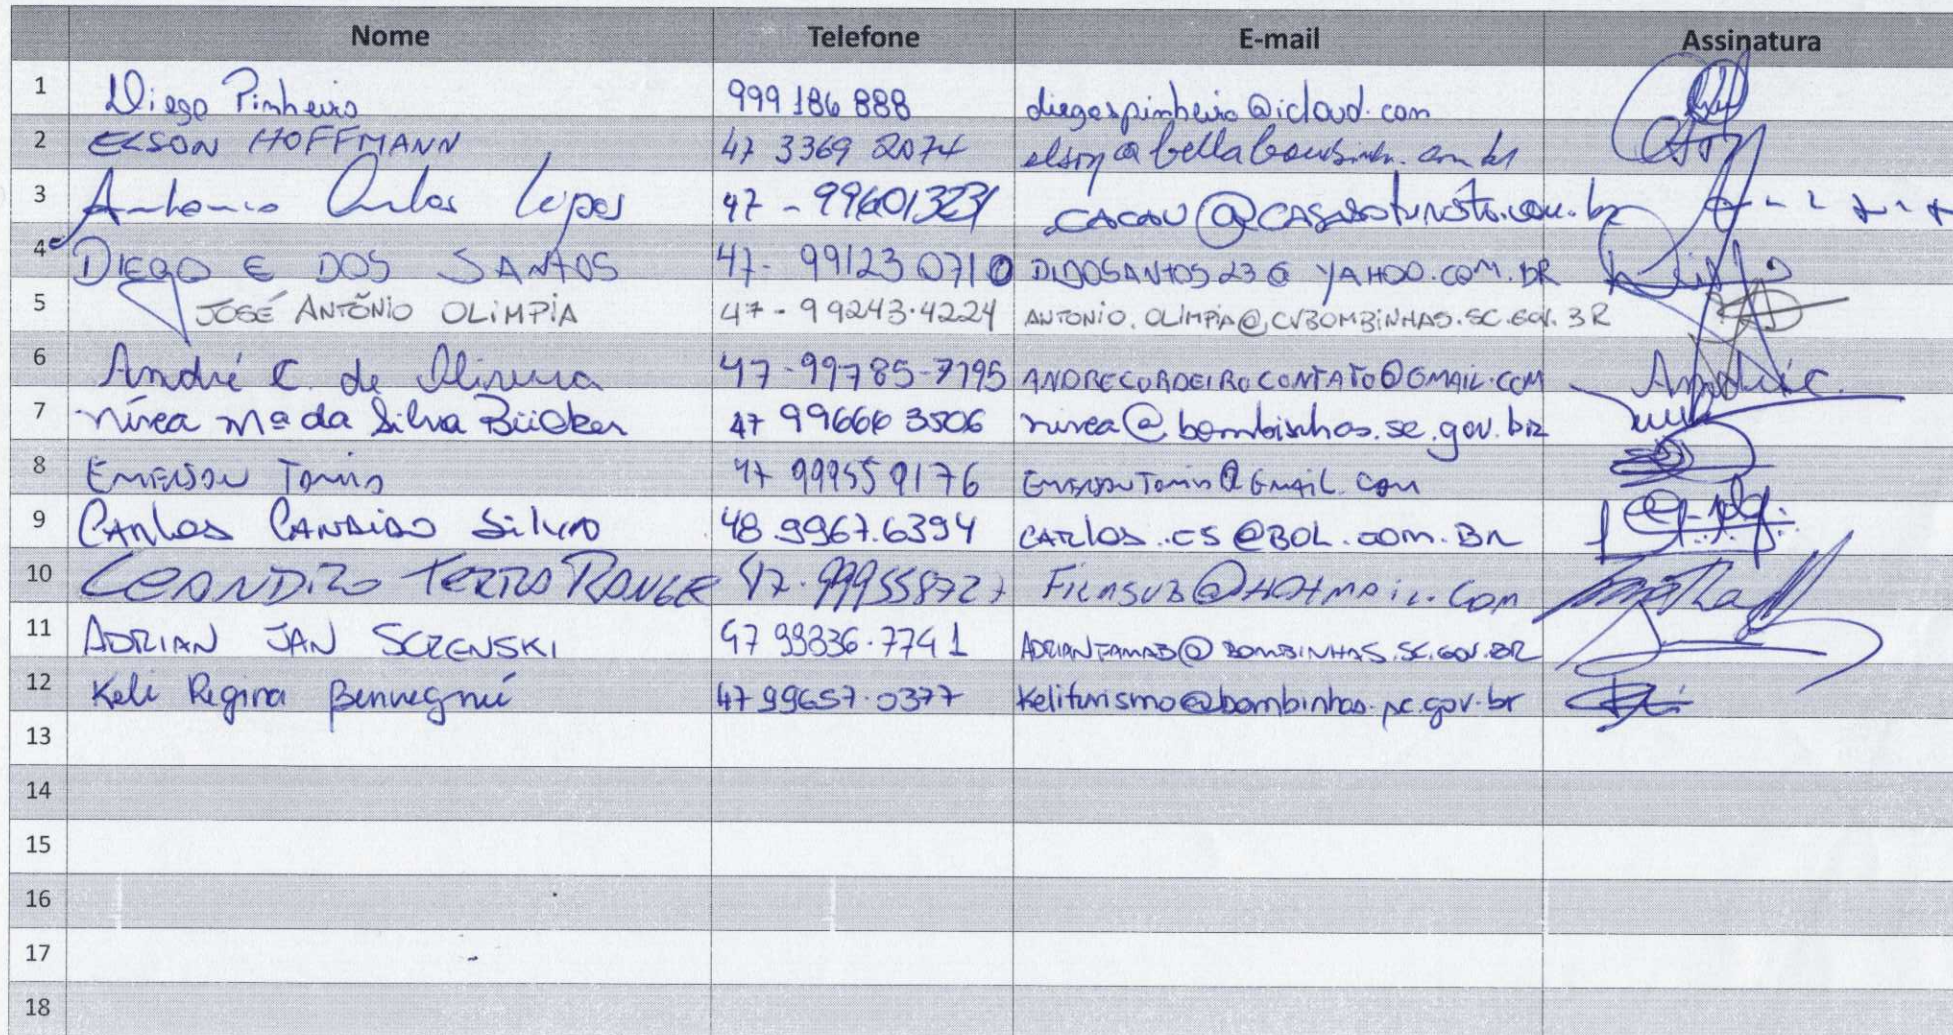 Nome Telefone E-mail Assinatura
1 Diego Pinheiro 999 186 888 diegospinheiro@icloud.com
2 ELSON HOFFMANN 47 3369 2074
3 Antonio Carlos Lopes 47 - 996013231
4 DIEGO E DOS SANTOS 47- 99123 0710 DIDOSANTOS23@YAHOO.COM.BR
5 JOSÉ ANTÔNIO OLIMPIA 47-99243.4224 ANTONIO.OLIMPIA@CVBOMBINHAS.SC.GOV.BR
6 André C. de Oliveira 47-99785-7795 ANDRECORDEIROCONTATO@GMAIL.COM André C.
7 Nívea Mª da Silva Bücker 47 99666 3506 nivea@bombinhas.sc.gov.br
8 EMERSON 47 99955 9176
9 CARLOS CANDIDO Silva 48 9967.6394 CARLOS.CS@BOL.COM.BR
10 LEANDRO TERRA RANGE 47.999558727 FILMSUB@HOTMAIL.COM
11 ADRIAN JAN SCZENSKI 47 99336.7741 ADRIANFAMAB@BOMBINHAS.SC.GOV.BR
12 Keli Regina Benvegnú 47 99657.0377 Keliturismo@bombinhas.sc.gov.br
13
14
15
16
17
18